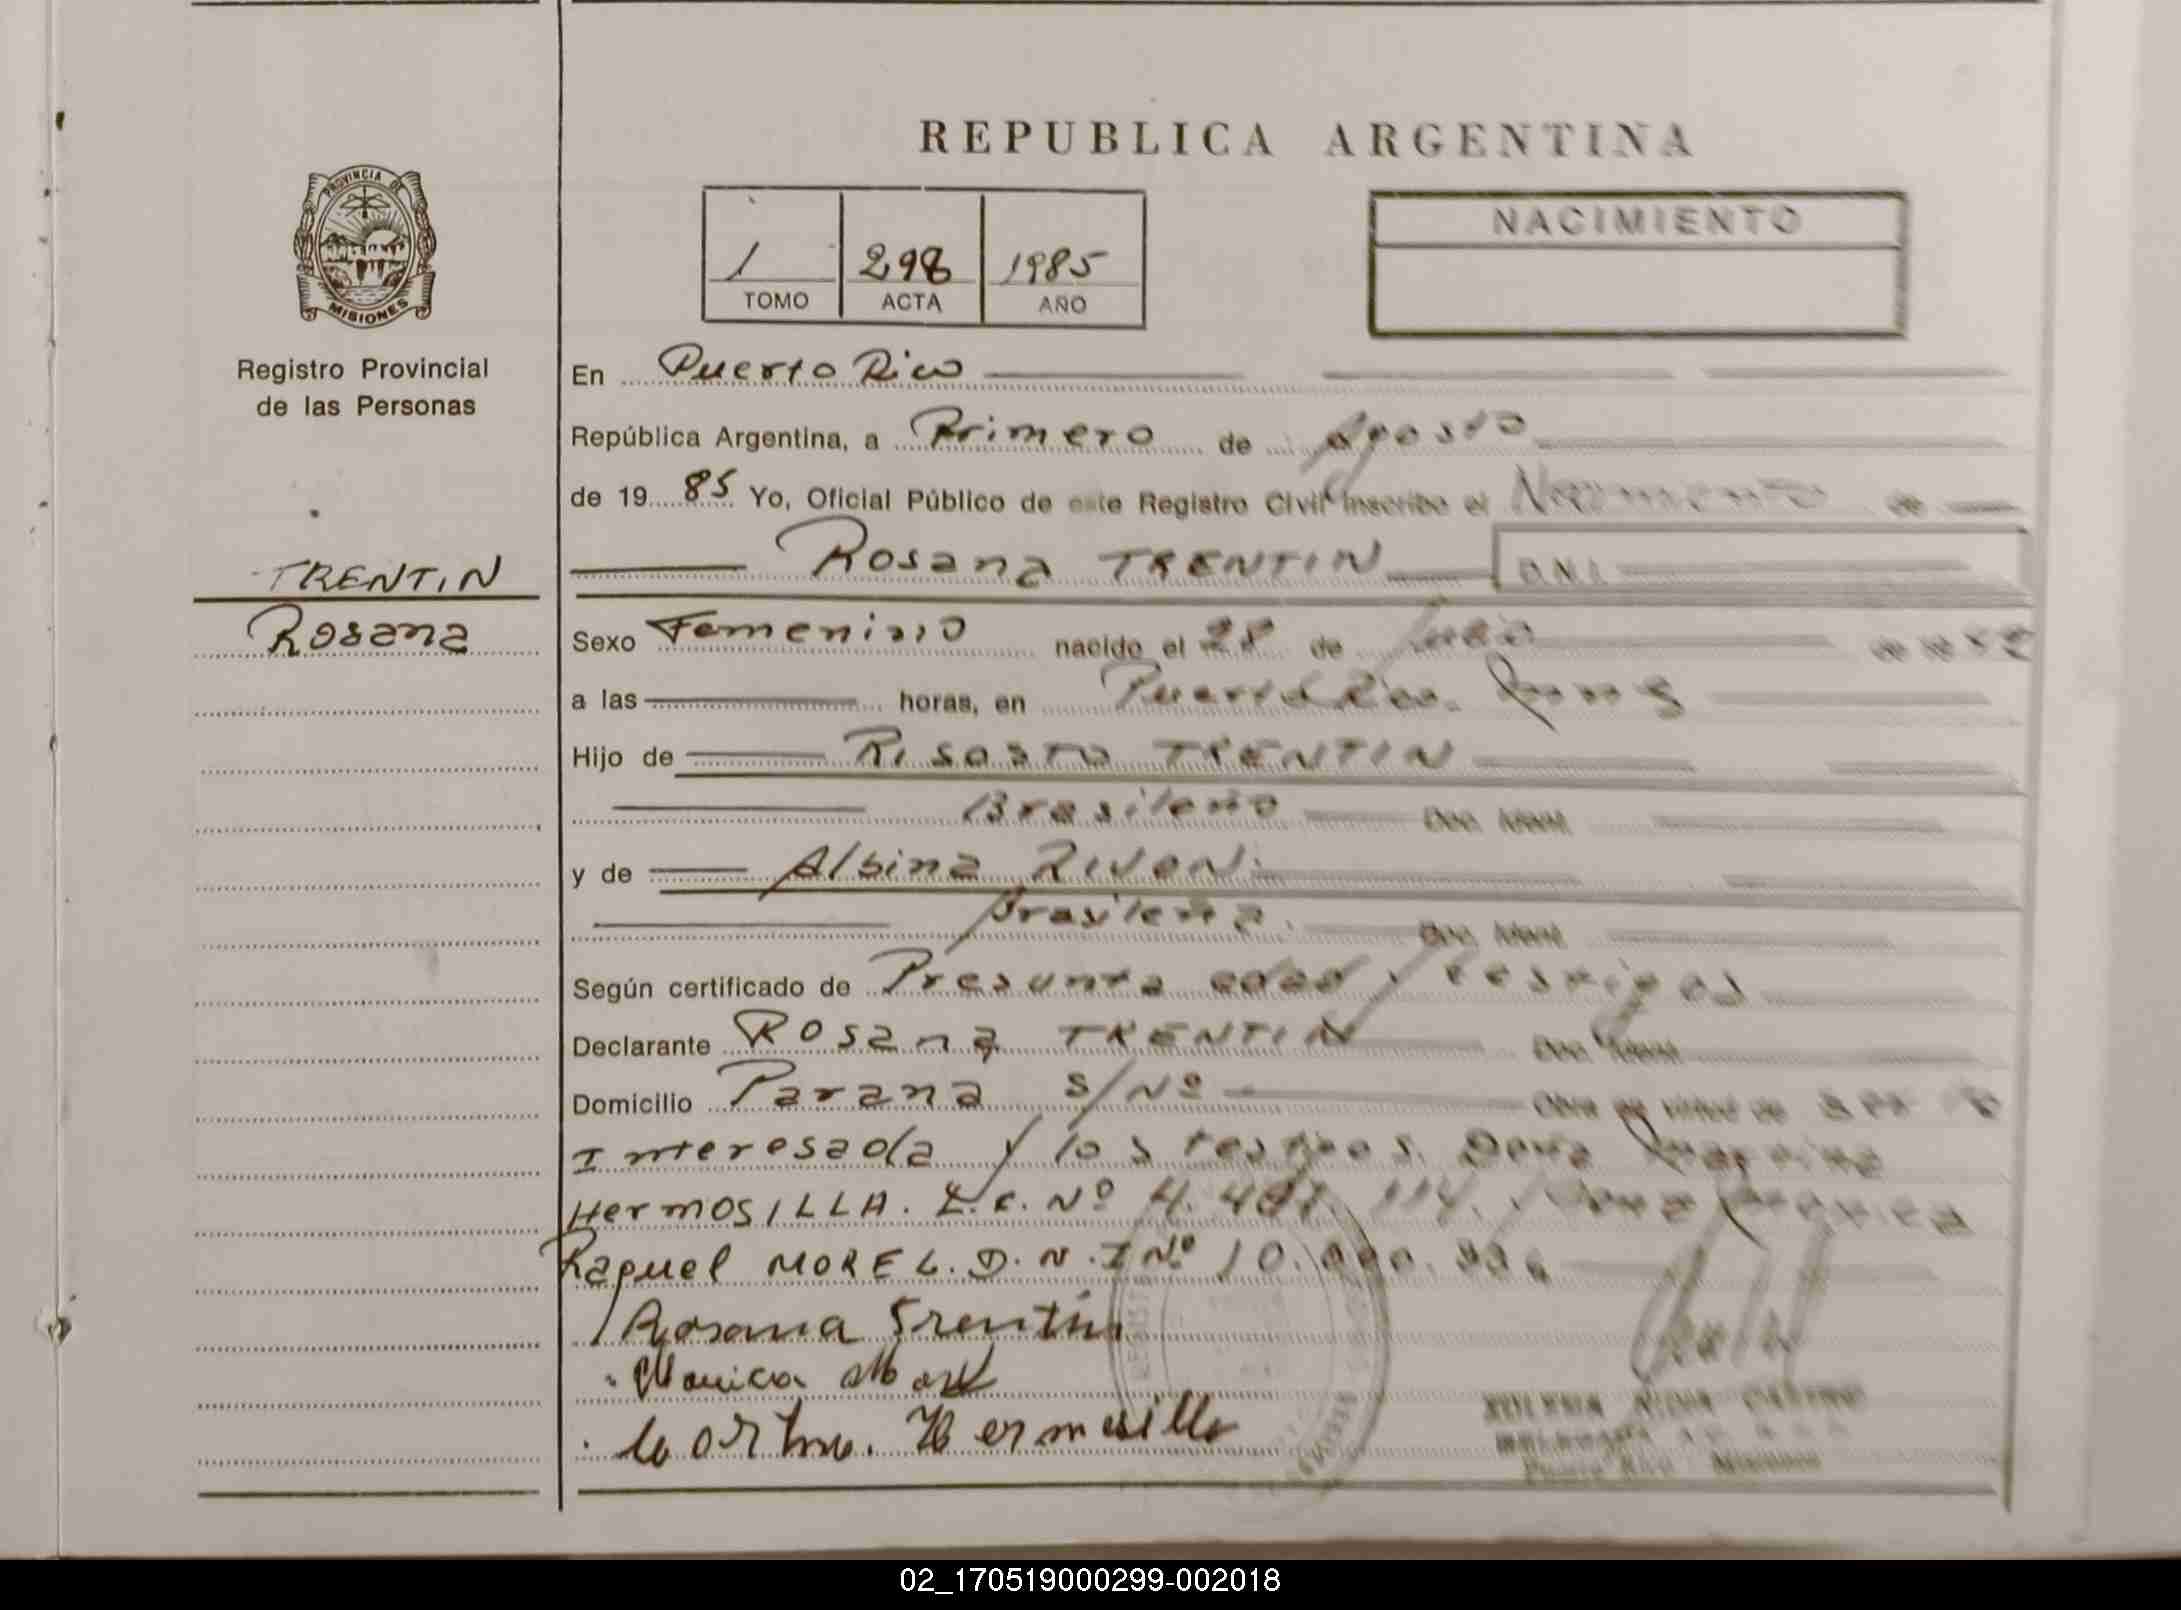 REPUBLICA ARGENTINA
PROVINCIA DE
MISIONES
Registro Provincial
de las Personas
TRENTIN
Rosana
1 298 1985
TOMO ACTA AÑO
NACIMIENTO
En Puerto Rico
República Argentina, a Primero de Agosto
de 19 85 Yo, Oficial Público de este Registro Civil inscribo el Nacimiento de
Rosana TRENTIN D.N.I.
Sexo Femenino nacido el 28 de de 19
a las horas, en Puerto Rico.
Hijo de TRENTIN
Brasileño Doc. Ident.
y de Albina
Brasileña. Doc. Ident.
Según certificado de Presunta edad y testigos
Declarante Rosana TRENTIN Doc. Ident.
Domicilio Parana S/Nº
Interesada y los testigos. Doña
HermosILLA. Nº 4. 114.
Raquel MOREL. D.N.I Nº 10.
Rosana Trentin
Monica
Hermosilla
Puerto Rico Misiones
02_170519000299-002018